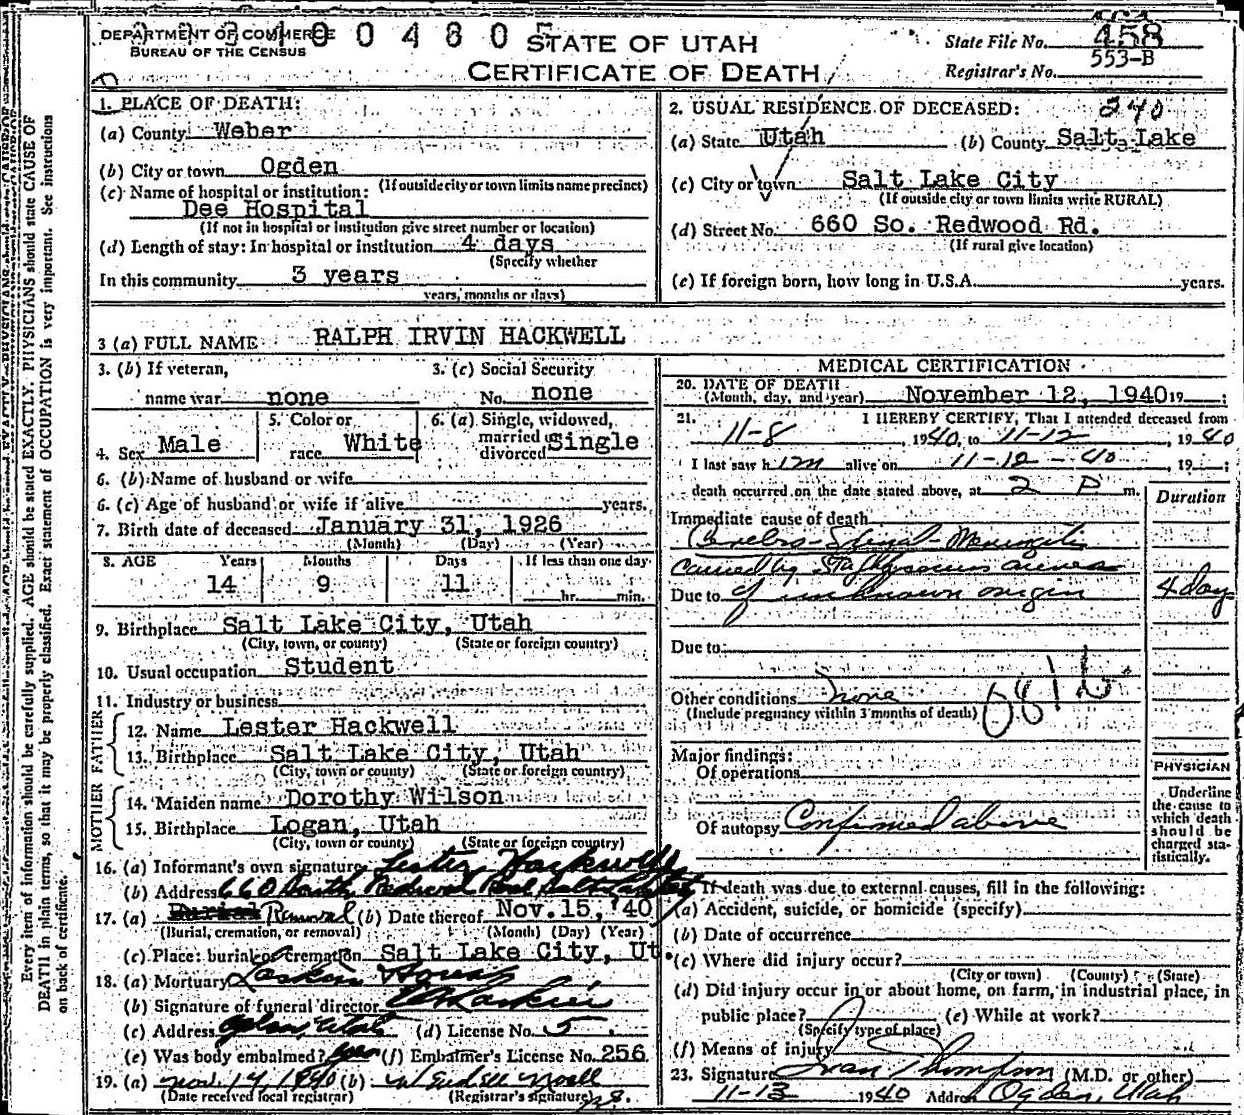 DEPARTMENT OF COMMERCE
BUREAU OF THE CENSUS
STATE OF UTAH
CERTIFICATE OF DEATH
State File No. 458
Registrar's No. 553-B
1. PLACE OF DEATH:
(a) County Weber
(b) City or town Ogden
(If outside city or town limits name precinct)
(c) Name of hospital or institution:
Dee Hospital
(If not in hospital or institution give street number or location)
(d) Length of stay: In hospital or institution 4 days
(Specify whether
In this community 3 years
years, months or days)
2. USUAL RESIDENCE OF DECEASED: 240
(a) State Utah (b) County Salt Lake
(c) City or town Salt Lake City
(If outside city or town limits write RURAL)
(d) Street No. 660 So. Redwood Rd.
(If rural give location)
(e) If foreign born, how long in U.S.A. years.
3 (a) FULL NAME RALPH IRVIN HACKWELL
3. (b) If veteran,
name war none
3. (c) Social Security
No. none
4. Sex Male
5. Color or
race White
6. (a) Single, widowed,
married or
divorced Single
6. (b) Name of husband or wife
6. (c) Age of husband or wife if alive years.
7. Birth date of deceased January 31, 1926
(Month) (Day) (Year)
8. AGE Years Months Days If less than one day
14 9 11 hr. min.
9. Birthplace Salt Lake City, Utah
(City, town, or county) (State or foreign country)
10. Usual occupation Student
11. Industry or business
FATHER
12. Name Lester Hackwell
13. Birthplace Salt Lake City, Utah
(City, town or county) (State or foreign country)
MOTHER
14. Maiden name Dorothy Wilson
15. Birthplace Logan, Utah
(City, town or county) (State or foreign country)
16. (a) Informant's own signature Lester Hackwell
(b) Address 660 South Redwood Road Salt Lake City
17. (a) Burial Removal (b) Date thereof Nov. 15, '40
(Burial, cremation, or removal) (Month) (Day) (Year)
(c) Place: burial or cremation Salt Lake City, Ut
18. (a) Mortuary Larkin & Sons
(b) Signature of funeral director Larkin
(c) Address Ogden, Utah (d) License No. 5
(e) Was body embalmed? yes (f) Embalmer's License No. 256
19. (a) Nov. 14, 1940 (b)
(Date received local registrar) (Registrar's signature)
MEDICAL CERTIFICATION
20. DATE OF DEATH
(Month, day, and year) November 12, 1940 19 ;
21. I HEREBY CERTIFY, That I attended deceased from
11-8, 1940, to 11-12, 1940
I last saw him alive on 11-12-40, 19 ;
death occurred on the date stated above, at 2 P m.
Duration
Immediate cause of death
Cerebro-Spinal-Meningitis
caused by
Due to of unknown origin 4 day
Due to:
Other conditions none
(Include pregnancy within 3 months of death)
Major findings:
Of operations
Of autopsy Confirmed above
PHYSICIAN
Underline
the cause to
which death
should be
charged sta-
tistically.
If death was due to external causes, fill in the following:
(a) Accident, suicide, or homicide (specify)
(b) Date of occurrence
(c) Where did injury occur?
(City or town) (County) (State)
(d) Did injury occur in or about home, on farm, in industrial place, in
public place? (e) While at work?
(Specify type of place)
(f) Means of injury
23. Signature Ivan Thompson (M.D. or other)
11-13 1940 Address Ogden, Utah
Every item of information should be carefully supplied. AGE should be stated EXACTLY. PHYSICIANS should state CAUSE OF
DEATH in plain terms, so that it may be properly classified. Exact statement of OCCUPATION is very important. See instructions
on back of certificate.